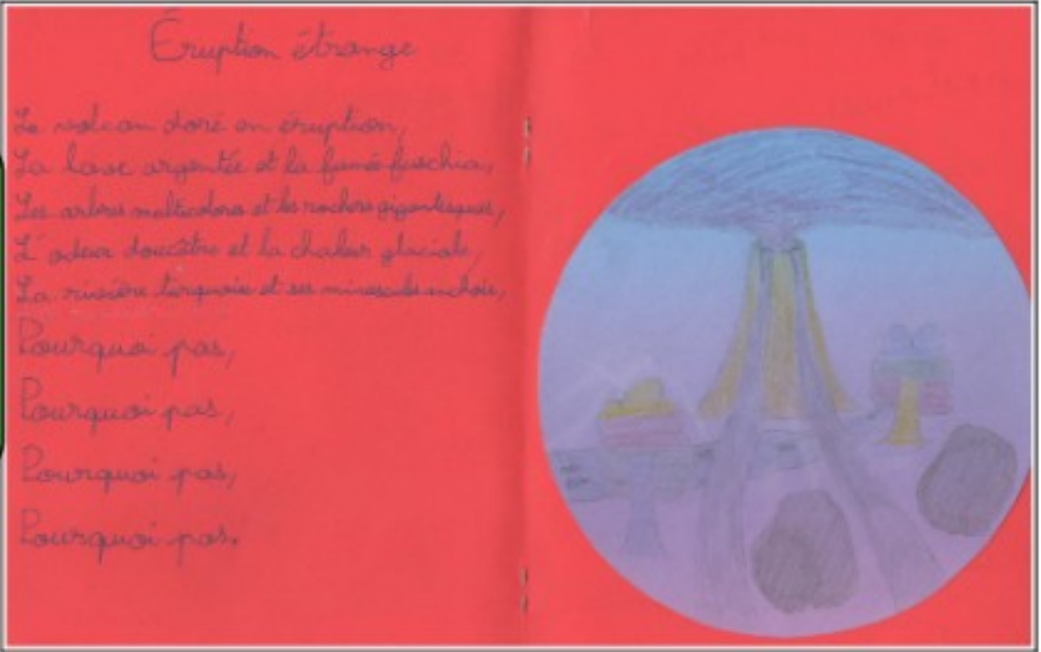 Éruption étrange
Le volcan doré en éruption,
La lave argentée et la fumée fuschia,
Les arbres multicolores et les rochers gigantesques,
L'odeur douceâtre et la chaleur glaciale,
La rivière turquoise et ses minuscules anchois,
Pourquoi pas,
Pourquoi pas,
Pourquoi pas,
Pourquoi pas.